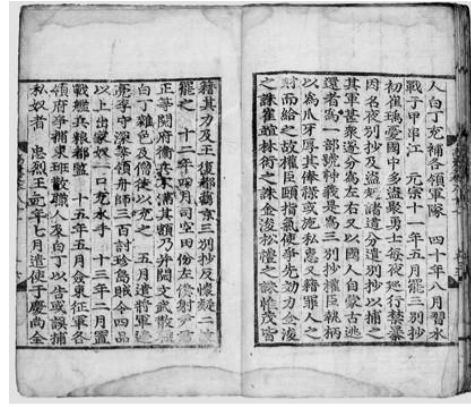 人白丁充補各領軍隊　四十年八月習水
戰于甲串江　元宗十一年五月罷三別抄
初崔瑀憂國中多盜聚勇士每夜巡行禁暴
因名夜別抄及盜起諸道分遣別抄以捕之
其軍甚衆遂分爲左右又以國人自蒙古逃
還者爲一部號神義是爲三別抄權臣執柄
以爲爪牙厚其俸祿或施私惠又籍罪人之
財而給之故權臣頤指氣使爭先効力金浚
之誅崔竩林衍之誅金浚松禮之誅惟茂皆
籍其力及王復都舊京三別抄反懷疑二
罷之　十二年四月司空田份左僕射尹君
正等閱府衛兵不滿其額乃幷閱文武散職
白丁雜色及僧徒以充之　五月遣將軍邊
亮李守深等領舟師三百討珍島賊令四品
以上出家奴一口充水手　十三年二月置
戰艦兵粮都監　十五年五月僉東征軍各
領府爭補東班散職人及白丁以告或誤捕
私奴者　忠烈王元年七月遣使于慶尙全